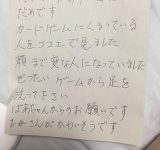 だめです
カードゲームに入っている
人をココエで見ました
顔まで変な人になっていました
ぜったいゲームから足を
洗って下さい
ばあちゃんからのお願いです
お母さんがかわいそうです